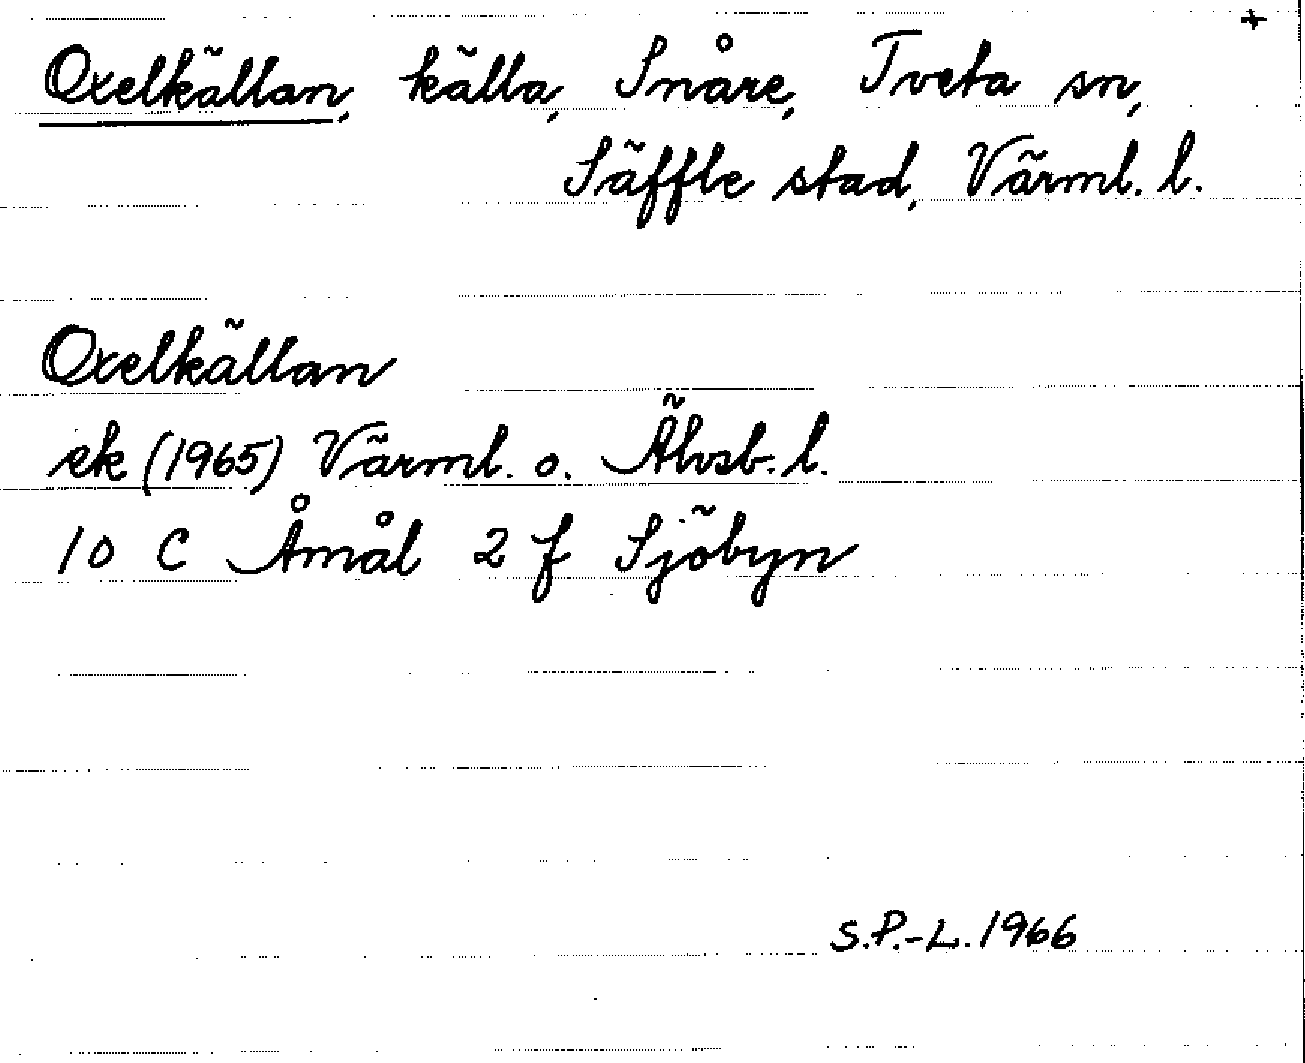 +
Oxelkällan, källa, Snåre, Tveta sn,
Säffle stad, Värml. l.
Oxelkällan
ek (1965) Värml. o. Älvsb. l.
10 C Åmål 2 f Sjöbyn
S.P.-L. 1966